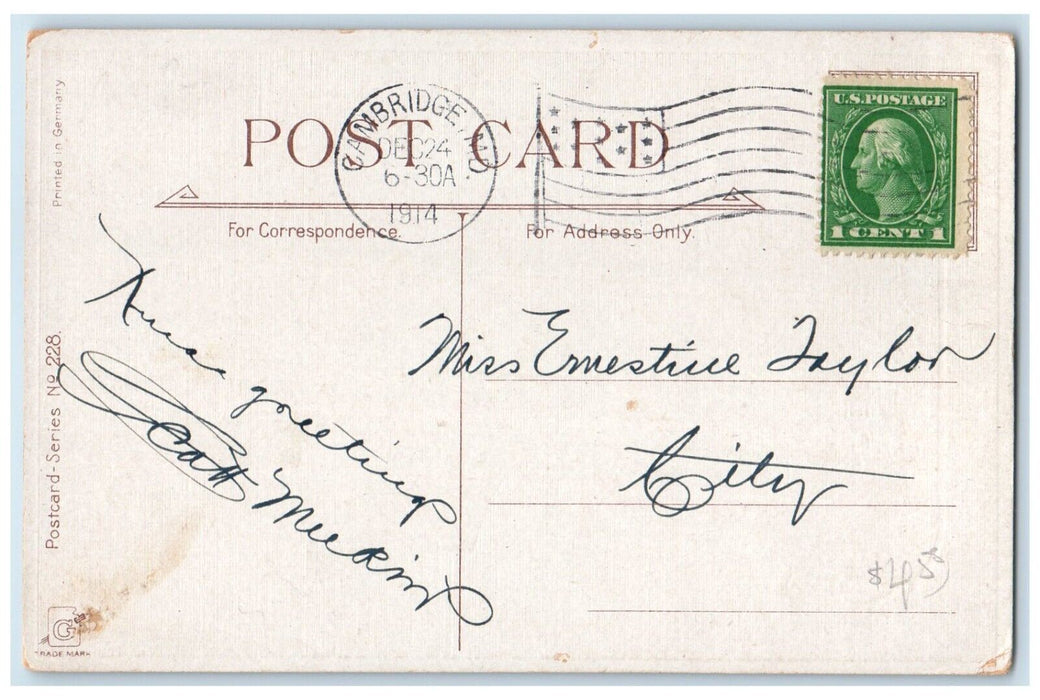 Printed in Germany
POST CARD
CAMBRIDGE, MD.
DEC 24
6-30A
1914
U.S. POSTAGE
1 CENT 1
For Correspondence.
For Address Only.
Postcard-Series No 228.
Xmas greetings
Scott
Miss Ernestine Taylor
City
$4.50
G
TRADE MARK